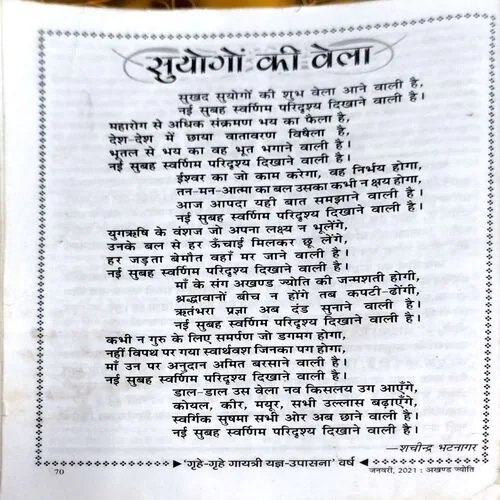 सुयोगों की वेला
सुखद सुयोगों की शुभ वेला आने वाली है,
नई सुबह स्वर्णिम परिदृश्य दिखाने वाली है।
महारोग से अधिक संक्रमण भय का फैला है,
देश-देश में छाया वातावरण विषैला है,
भूतल से भय का वह भूत भगाने वाली है।
नई सुबह स्वर्णिम परिदृश्य दिखाने वाली है।
ईश्वर का जो काम करेगा, वह निर्भय होगा,
तन-मन-आत्मा का बल उसका कभी न क्षय होगा,
आज आपदा यही बात समझाने वाली है।
नई सुबह स्वर्णिम परिदृश्य दिखाने वाली है।
युगऋषि के वंशज जो अपना लक्ष्य न भूलेंगे,
उनके बल से हर ऊँचाई मिलकर छू लेंगे,
हर जड़ता बेमौत वहाँ मर जाने वाली है।
नई सुबह स्वर्णिम परिदृश्य दिखाने वाली है।
माँ के संग अखण्ड ज्योति की जन्मशती होगी,
श्रद्धावानों बीच न होंगे तब कपटी-ढोंगी,
ऋतंभरा प्रज्ञा अब दंड सुनाने वाली है।
नई सुबह स्वर्णिम परिदृश्य दिखाने वाली है।
कभी न गुरु के लिए समर्पण जो डगमग होगा,
नहीं विपथ पर गया स्वार्थवश जिनका पग होगा,
माँ उन पर अनुदान अमित बरसाने वाली है।
नई सुबह स्वर्णिम परिदृश्य दिखाने वाली है।
डाल-डाल उस वेला नव किसलय उग आएँगे,
कोयल, कीर, मयूर, सभी उल्लास बढ़ाएँगे,
स्वर्गिक सुषमा सभी ओर अब छाने वाली है।
नई सुबह स्वर्णिम परिदृश्य दिखाने वाली है।
—शचीन्द्र भटनागर
'गृहे-गृहे गायत्री यज्ञ-उपासना' वर्ष
70 जनवरी, 2021 : अखण्ड ज्योति